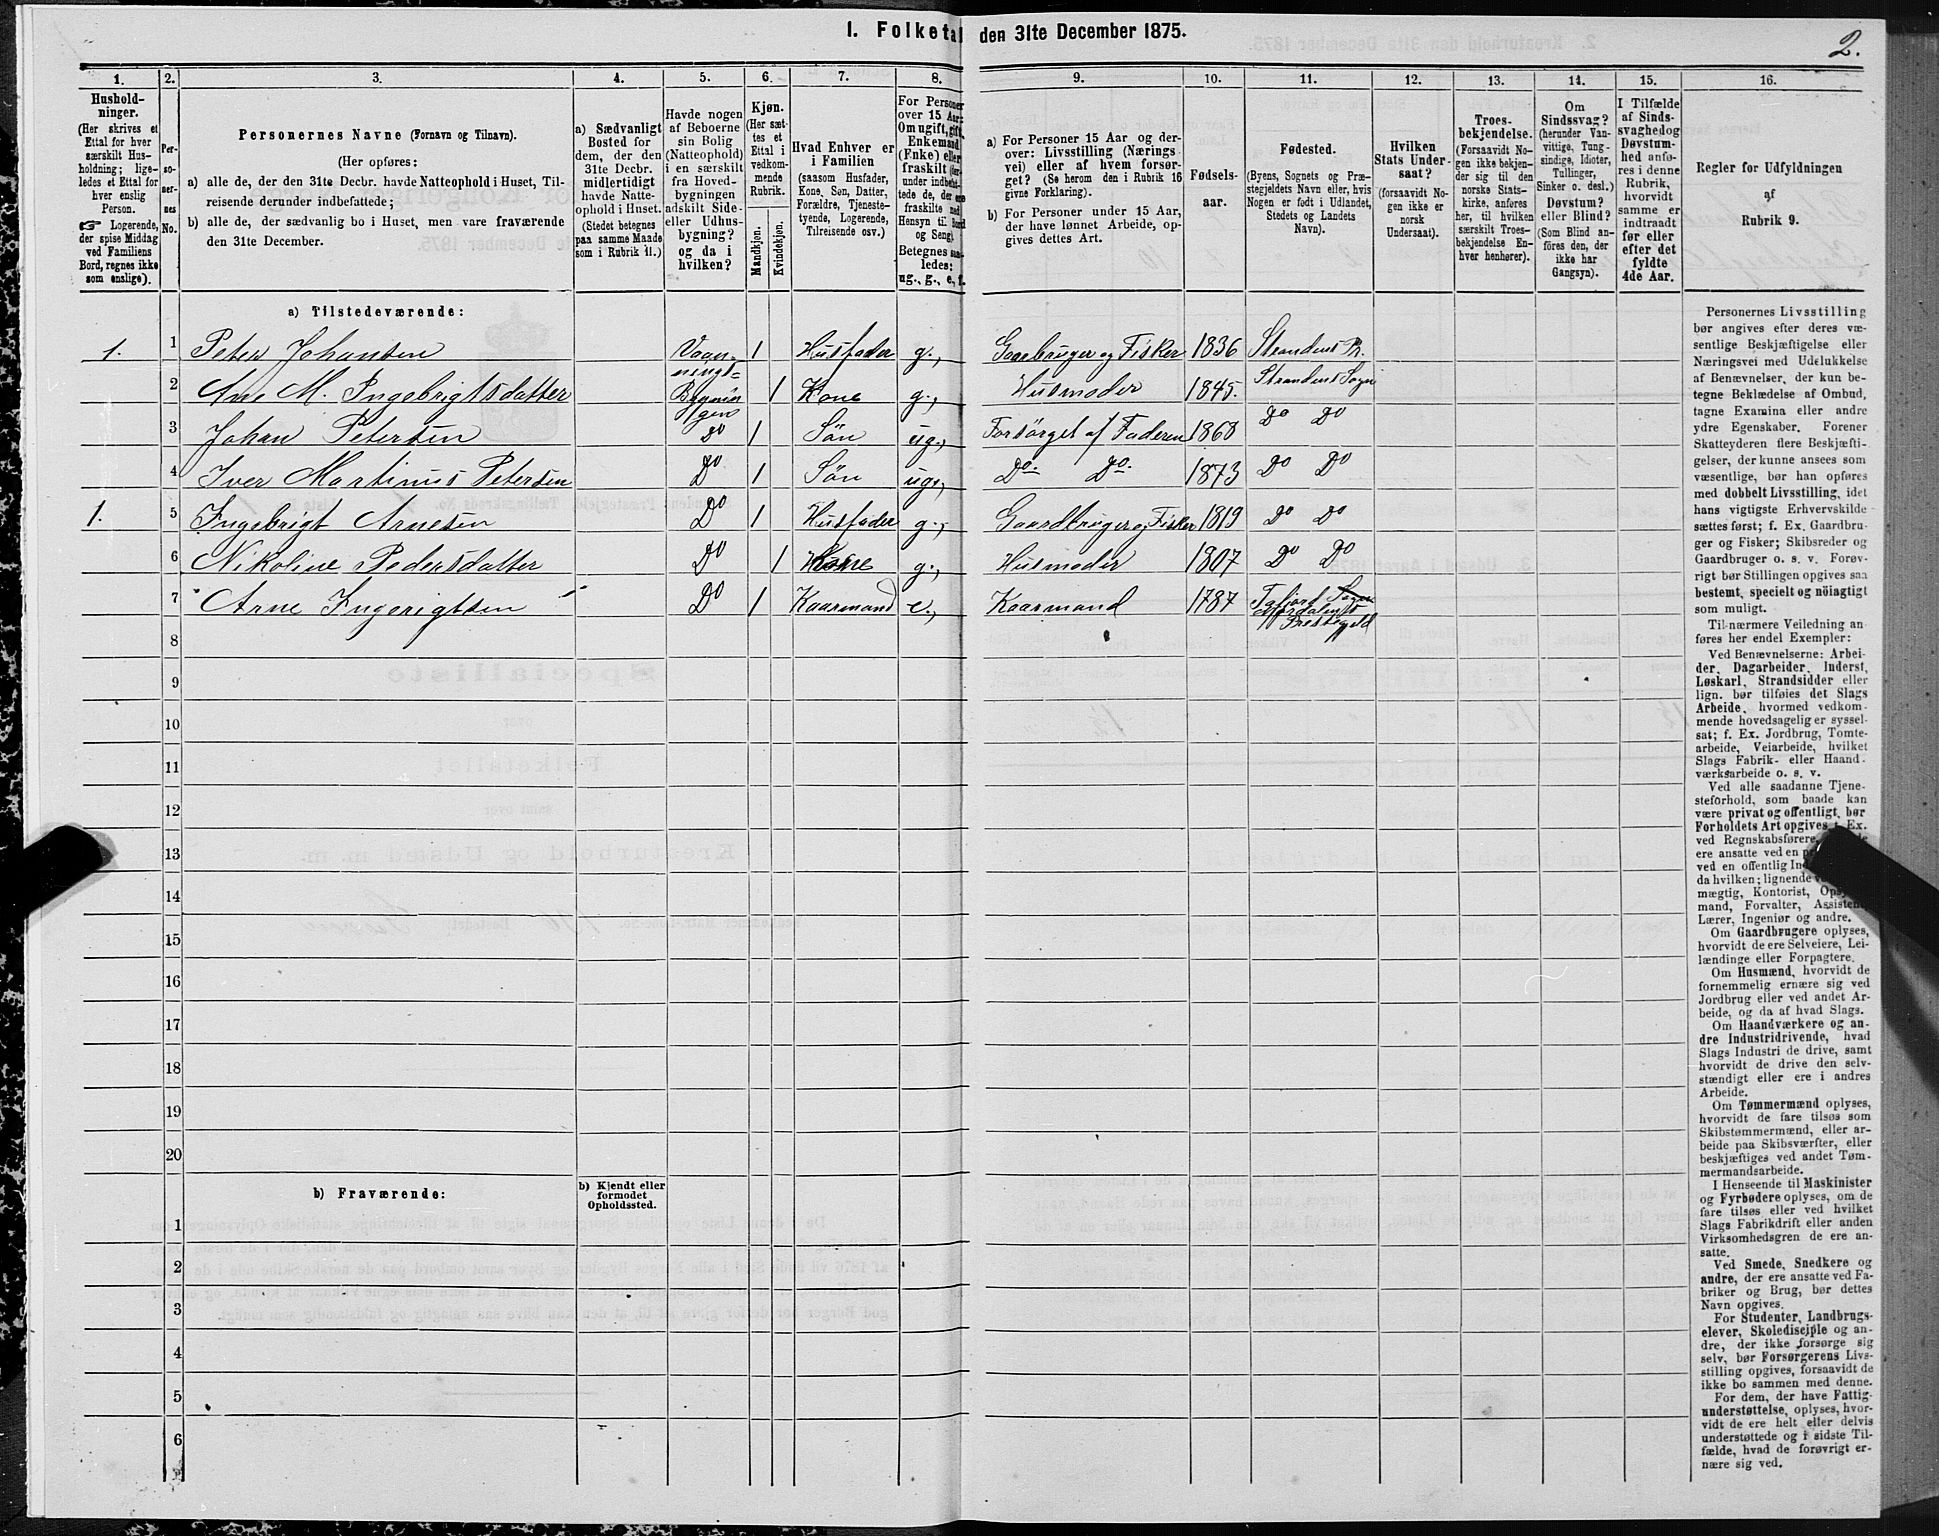 I. Folketal den 31te December 1875.
2.
1. 2. 3. 4. 5. 6. 7. 8. 9. 10. 11. 12. 13. 14. 15. 16.
Hushold-
ninger.
(Her skrives et
Ettal for hver
særskilt Hus-
holdning; lige-
ledes et Ettal for
hver enslig
Person.
☞ Logerende,
der spise Middag
ved Familiens
Bord, regnes ikke
som enslige).
Per-
so-
ner-
nes
No.
Personernes Navne (Fornavn og Tilnavn).
(Her opføres:
a) alle de, der den 31te Decbr. havde Natteophold i Huset, Til-
reisende derunder indbefattede;
b) alle de, der sædvanlig bo i Huset, men vare fraværende
den 31te December.
a) Sædvanligt
Bosted for
dem, der den
31te Decbr.
midlertidigt
havde Natte-
ophold i Huset.
(Stedet betegnes
paa samme Maade
som i Rubrik 11.)
Havde nogen
af Beboerne
sin Bolig
(Natteophold)
i en særskilt
fra Hoved-
bygningen
adskilt Side-
eller Udhus-
bygning?
og da i
hvilken?
Kjøn.
(Her sæt-
tes et
Ettal i
vedkom-
mende
Rubrik.
Mandkjøn.
Kvindekjøn.
Hvad Enhver er
i Familien
(saasom Husfader,
Kone, Søn, Datter,
Forældre, Tjeneste-
tyende, Logerende,
Tilreisende osv.)
For Personer
over 15 Aar:
Om ugift, gift,
Enkemand
(Enke) eller
fraskilt (her-
under indbefat-
tede de, der ere
fraskilte med
Hensyn til Bord
og Seng).
Betegnes saa-
ledes:
ug., g., e., f.
a) For Personer 15 Aar og der-
over: Livsstilling (Nærings-
vei) eller af hvem forsør-
get? (Se herom den i Rubrik 16
givne Forklaring).
b) For Personer under 15 Aar,
der have lønnet Arbeide, op-
gives dettes Art.
Fødsels-
aar.
Fødested.
(Byens, Sognets og Præ-
stegjeldets Navn eller, hvis
Nogen er født i Udlandet,
Stedets og Landets
Navn).
Hvilken
Stats Under-
saat?
(forsaavidt No-
gen ikke er
norsk
Undersaat).
Troes-
bekjendelse.
(Forsaavidt No-
gen ikke bekjen-
der sig til den
norske Stats-
kirke, anføres
her, til hvilken
særskilt Troes-
bekjendelse En-
hver henhører).
Om
Sindssvag?
(herunder Van-
vittige, Tung-
sindige, Idioter,
Tullinger,
Sinker o. desl.)
Døvstum?
eller Blind?
(Som Blind an-
føres den, der
ikke har
Gangsyn).
I Tilfælde
af Sinds-
svaghed og
Døvstum-
hed anfø-
res i denne
Rubrik,
hvorvidt
samme er
indtraadt
før eller
efter det
fyldte
4de Aar.
Regler for Udfyldningen
af
Rubrik 9.
a) Tilstedeværende:
1. 1 Peter Johansen Vaan- 1 Husfader g., Gaardbruger og Fisker 1836 Strandens Pr.
nings-
2 Ane M. Ingebrigtsdatter Bygnin 1 Kone g., Husmoder 1845. Strandens Sogn
gen
3 Johan Petersen Do 1 Søn ug., Forsørget af Faderen 1868 Do Do
4 Iver Martinus Petersen Do 1 Søn ug., Do. Do. 1873 Do Do
1. 5 Ingebrigt Arnesen Do 1 Husfader g., Gaardbruger og Fisker 1819 Do Do
6 Nikoline Pedersdatter Do 1 Kone g., Husmoder 1807 Do Do
7 Arne Ingerigtsen Do 1 Kaarmand e., Kaarmand 1787 Tafjord Sogn
Nordalens
Prestegjeld
8
9
10
11
12
13
14
15
16
17
18
19
20
b) Fraværende:
b) Kjendt eller
formodet
Opholdssted.
1
2
3
4
5
6
Personernes Livsstilling
bør angives efter deres væ-
sentlige Beskjæftigelse eller
Næringsvei med Udelukkelse
af Benævnelser, der kun be-
tegne Beklædelse af Ombud,
tagne Examina eller andre
ydre Egenskaber. Forener
Skatteyderen flere Beskjæfti-
gelser, der kunne ansees som
væsentlige, bør han opføres
med dobbelt Livsstilling, idet
hans vigtigste Erhvervskilde
sættes først; f. Ex. Gaardbru-
ger og Fisker; Skibsreder og
Gaardbruger o. s. v. Forøv-
rigt bør Stillingen opgives saa
bestemt, specielt og nöiagtigt
som muligt.
Til nærmere Veiledning an-
føres her endel Exempler:
Ved Benævnelserne: Arbei-
der, Dagarbeider, Inderst,
Løskarl, Strandsidder eller
lign. bør tilføies det Slags
Arbeide, hvormed vedkom-
mende hovedsagelig er syssel-
sat; f. Ex. Jordbrug, Tomte-
arbeide, Veiarbeide, hvilket
Slags Fabrik- eller Haand-
værksarbeide o. s. v.
Ved alle saadanne Tjene-
steforhold, som baade kan
være privat og offentligt, bør
Forholdets Art opgives, f. Ex.
ved Regnskabsførere,
ere ansatte ved en
ved en offentlig
da hvilken; lignende
mægtig, Kontorist,
mand, Forvalter, Assistent,
Lærer, Ingeniør og andre.
Om Gaardbrugere oplyses,
hvorvidt de ere Selveiere, Lei-
lændinge eller Forpagtere.
Om Husmænd, hvorvidt de
fornemmelig ernære sig ved
Jordbrug eller ved andet Ar-
beide, og da af hvad Slags.
Om Haandværkere og an-
dre Industridrivende, hvad
Slags Industri de drive, samt
hvorvidt de drive den selv-
stændigt eller ere i andres
Arbeide.
Om Tømmermænd oplyses,
hvorvidt de fare tilsøs som
Skibstømmermænd, eller ar-
beide paa Skibsværfter, eller
beskjæftiges ved andet Tøm-
mermandsarbeide.
I Henseende til Maskinister
og Fyrbødere oplyses, om de
fare tilsøs eller ved hvilket
Slags Fabrikdrift eller anden
Virksomhedsgren de ere an-
satte.
Ved Smede, Snedkere og
andre, der ere ansatte ved Fa-
briker og Brug, bør dettes
Navn opgives.
For Studenter, Landbrugs-
elever, Skoledisciple og an-
dre, der ikke forsørge sig
selv, bør Forsørgerens Livs-
stilling opgives, forsaavidt de
ikke bo sammen med denne.
For dem, der have Fattig-
understøttelse, oplyses, hvor-
vidt de ere helt eller delvis
understøttede og i sidste Til-
fælde, hvad de forøvrigt er-
nære sig ved.